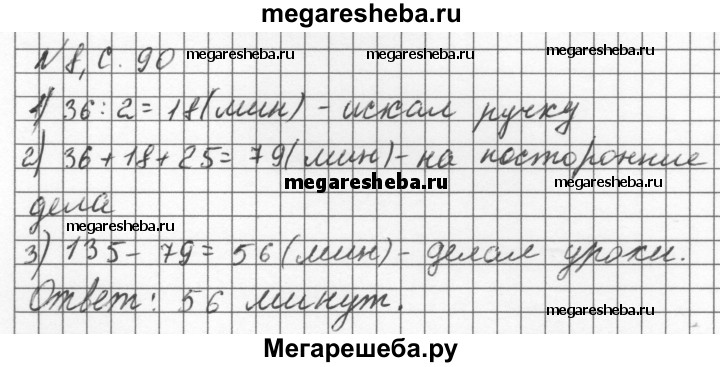 megaresheba.ru
N 8, с. 90 megaresheba.ru megaresheba.ru
1) 36 : 2 = 18 (мин) - искал ручку
2) 36 + 18 + 25 = 79 (мин) - на посторонние
megaresheba.ru megaresheba.ru
дела
megaresheba.ru
3) 135 - 79 = 56 (мин) - делал уроки.
Ответ: 56 минут.
Мегарешеба.ру